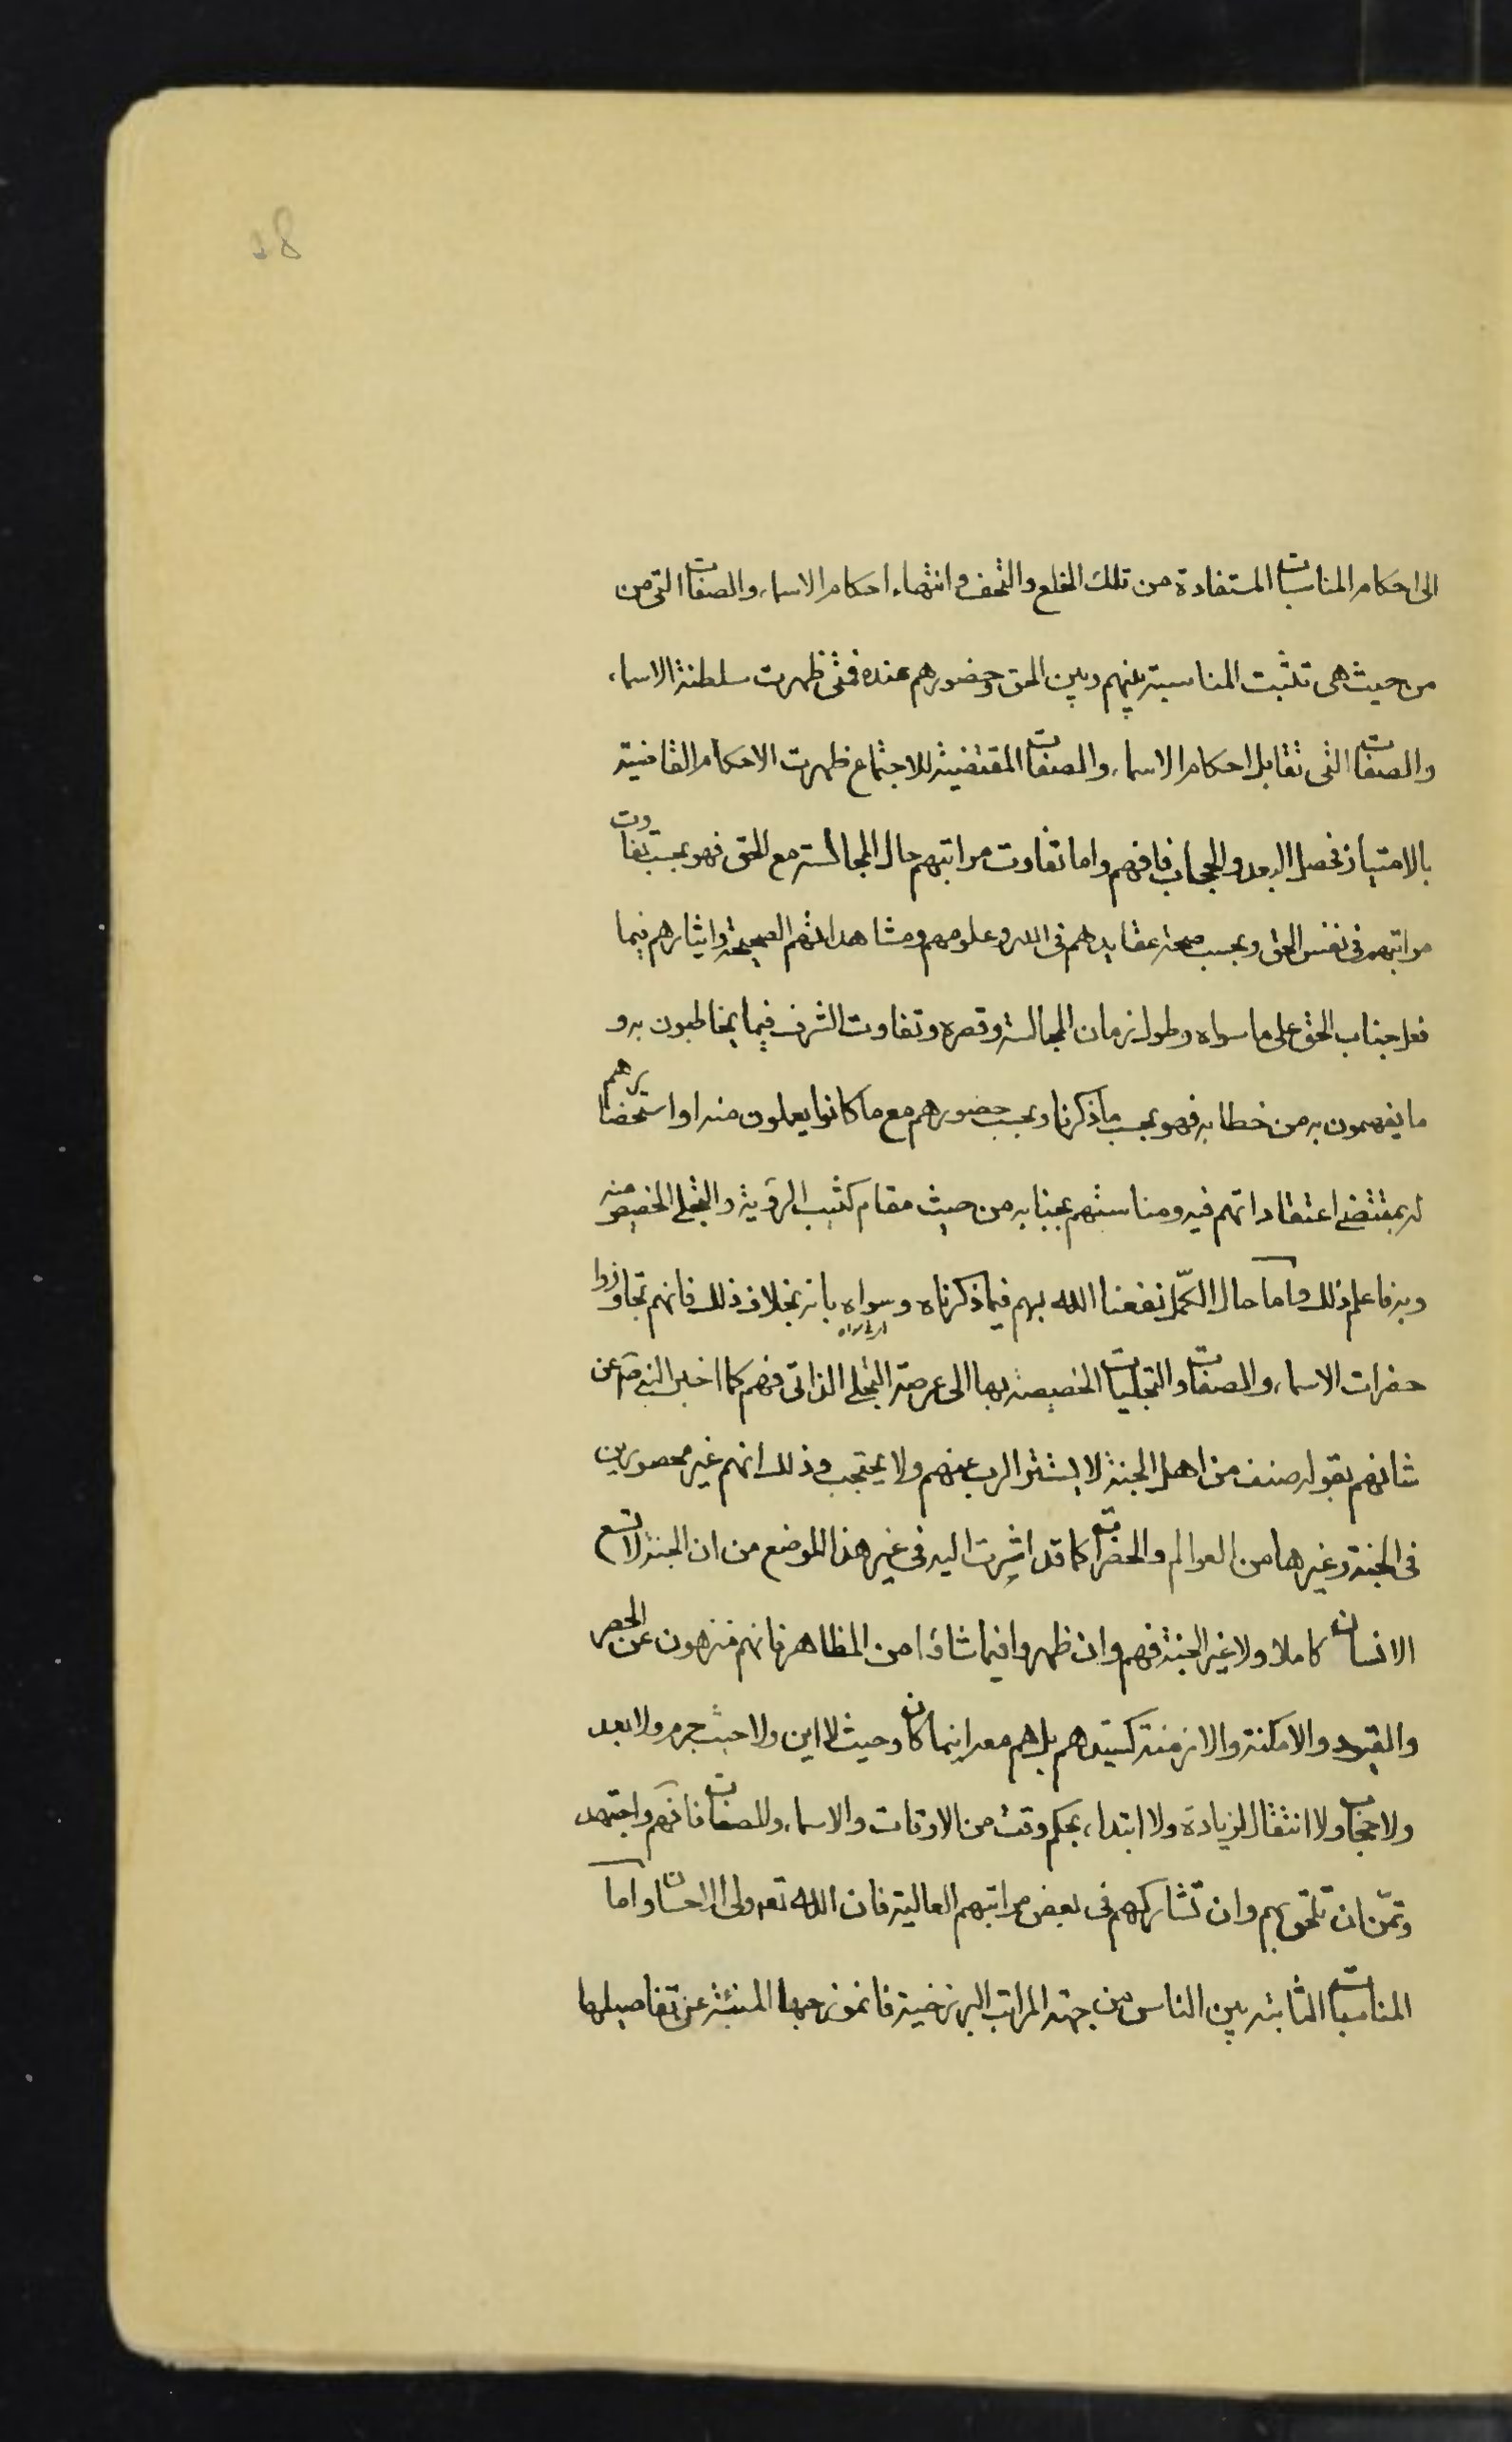 28
الى احكام المناسبات المستفادة من تلك الخلع والتحف وانتهاء احكام الاسماء والصفات التى من
من حيث هى تثبت المناسبة بينهم وبين الحق وحضورهم عنده فمتى ظهرت سلطنة الاسماء
والصفات التى تقابل احكام الاسماء والصفات المقتضية للاجتماع ظهرت الاحكام القاضية
بالامتياز فحصل البعد والحجاب فافهم واما تفاوت مراتبهم حال المجالسة مع الحق فهو بحسب تفاوت
مراتبهم فى نفس الحق وبحسب صحة عقايدهم فى الله وعلومهم ومشاهداتهم الصحيحة وايثارهم فيما
فعل جناب الحق على ما سواه وطول زمان المجالسة وقصره وتفاوت الشرف فيما يخاطبون به و
ما يفهمون به من خطابه فهو بحسب ما ذكرنا وبحسب حضورهم مع ما كانوا يعلمون منه او استحضارهم
له بمقتضى اعتقاداتهم فيه ومناسبتهم بجنابه من حيث مقام كثيب الرؤية والتجلى الخصيص منه
وبه فاعلم ذلك واما حال الكمّل نفعنا الله بهم فيما ذكرناه وسواه بانه بخلاف ذلك فانهم تجاوزوا
حضرات الاسماء والصفات والتجليات الخصيصة بها الى عرصة التجلى الذاتى فهم كما اخبر النبى صلعم عن
شانهم بقوله صنف من اهل الجنة لا يستتر الرب عنهم ولا يحتجب وذلك انهم غير محصورين
فى الجنة وغيرها من العوالم والحضرات كما قد اشرت اليه فى غير هذا الموضع من ان الجنة لا تسع
الانسان كاملا ولا غير الجنة فهم وان ظهروا فيما شاؤا من المظاهر فانهم منزهون عن الحصر
والقيود والامكنة والازمنة كسيّدهم بل هم معه اينما كان وحيث لا اين ولا حيث جرم ولا بعد
ولا حجاب ولا انتقال لزيادة ولا ابتداء بحكم وقت من الاوقات والاسماء والصفات فافهم واجتهد
وتمّن ان تلحق بهم وان تشاركهم فى بعض مراتبهم العالية فان الله تعـ ولى الاحسان واما
المناسبات الثابتة بين الناس من جهة المراتب البرزخية فانموزجها المنبئة عن تفاصيلها